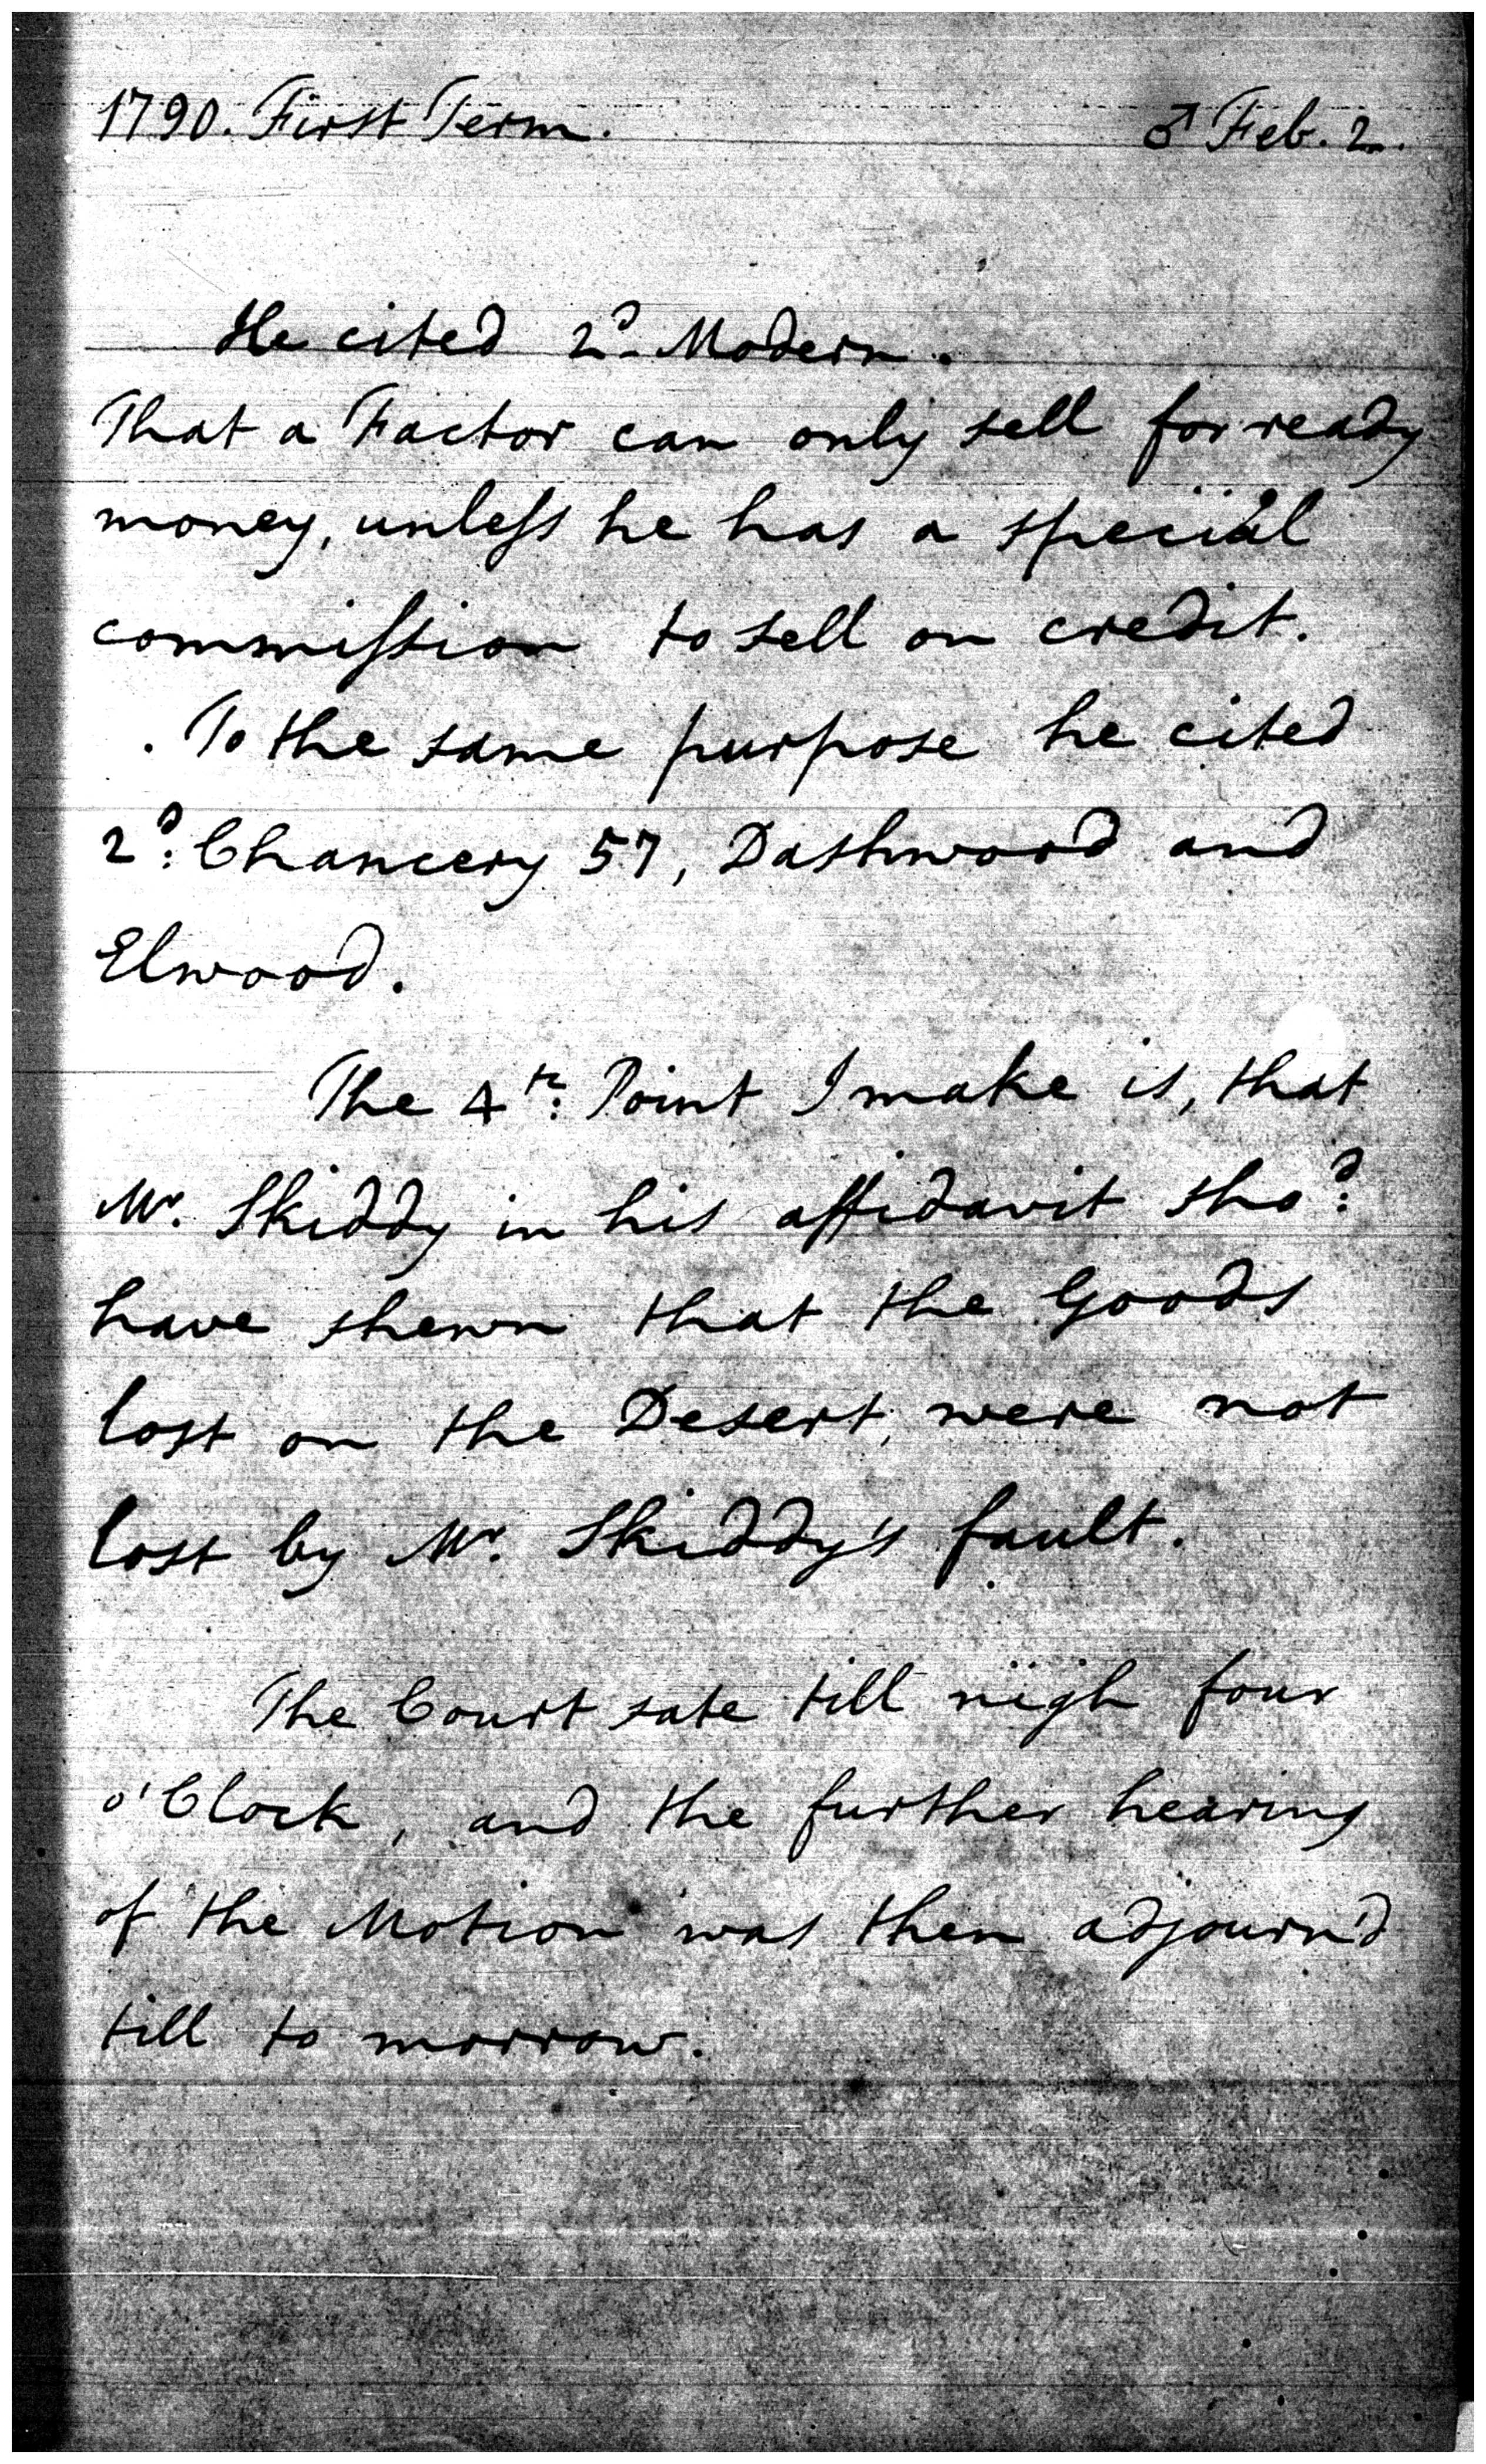 1790. First Term. ♂ Feb. 2.
He cited 2d. Modern.
That a Factor can only sell for ready
money, unleſs he has a special
commiſsion to sell on credit.
To the same purpose he cited
2d: Chancery 57, Dashwood and
Elwood.
The 4th: Point I make is, that
Mr. Skiddy in his affidavit shod:
have shewn that the Goods
lost on the Desert, were not
lost by Mr. Skiddy's fault.
The Court sate till nigh four
o'Clock, and the further hearing
of the Motion was then adjourn'd
till to morrow.